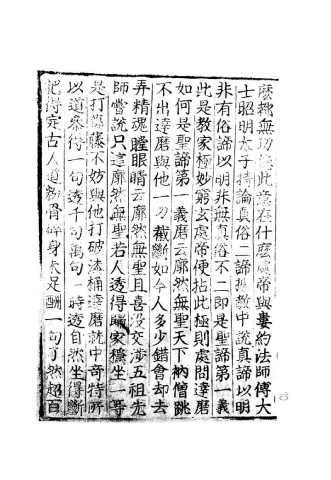 麽都無功德此意在什麽處帝與婁約法師傅大
士昭明太子持論真俗二諦據教中說真諦以明
非有俗諦以明非無真俗不二即是聖諦第一義
此是教家極妙窮玄處帝便拈此極則處問達磨
如何是聖諦第一義磨云廓然無聖天下衲僧跳
不出達磨與他一刀截斷如今人多少錯會却去
弄精魂瞠眼睛云廓然無聖且喜沒交涉五祖先
師嘗說只這廓然無聖若人透得歸家穩坐一等
是打葛藤不妨與他打破漆桶達磨就中奇特所
以道參得一句透千句萬句一時透自然坐得斷
把得定古人道粉骨碎身未足酬一句了然超百